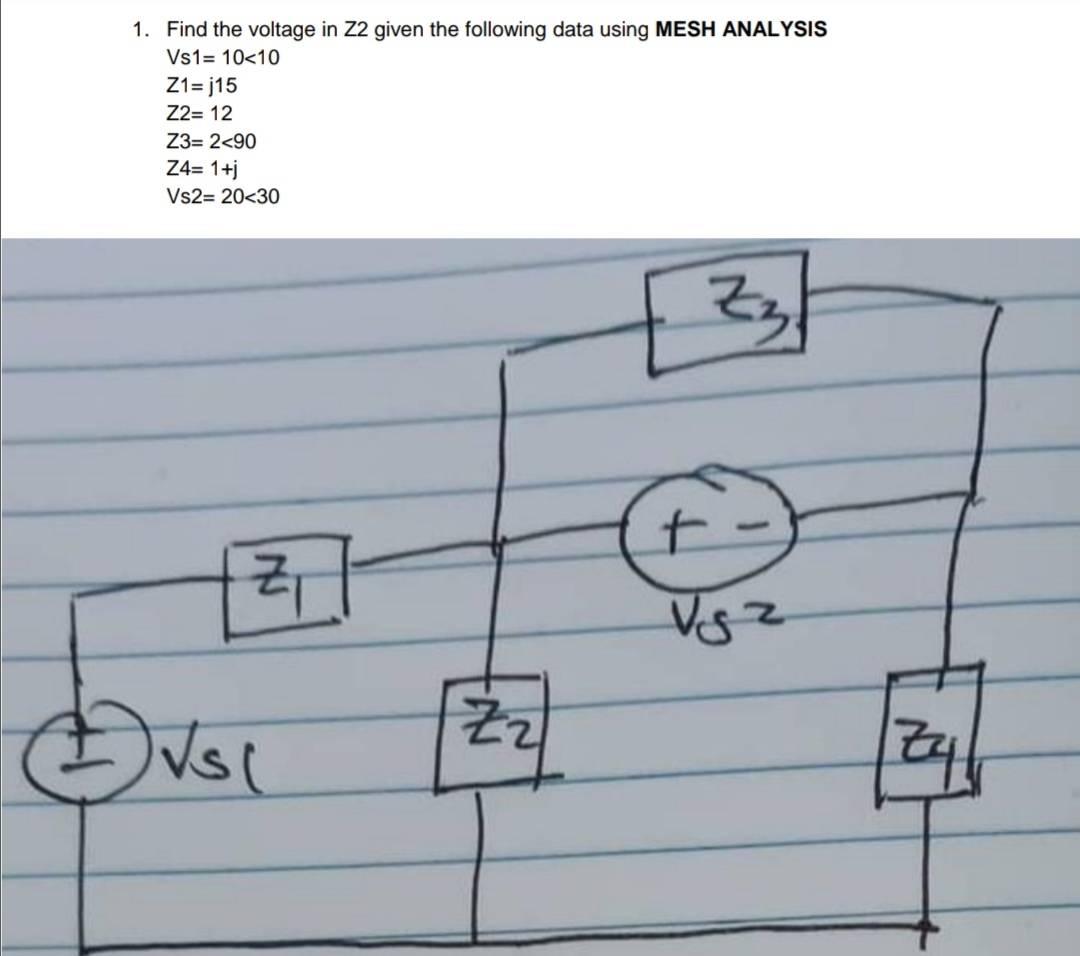 1. Find the voltage in Z2 given the following data using MESH ANALYSIS
Vs1= 10<10
Z1= j15
Z2= 12
Z3= 2<90
Z4= 1+j
Vs2= 20<30
Z3
+ -
Z1
Vs2
Z2
+
-
Vs1
Z4